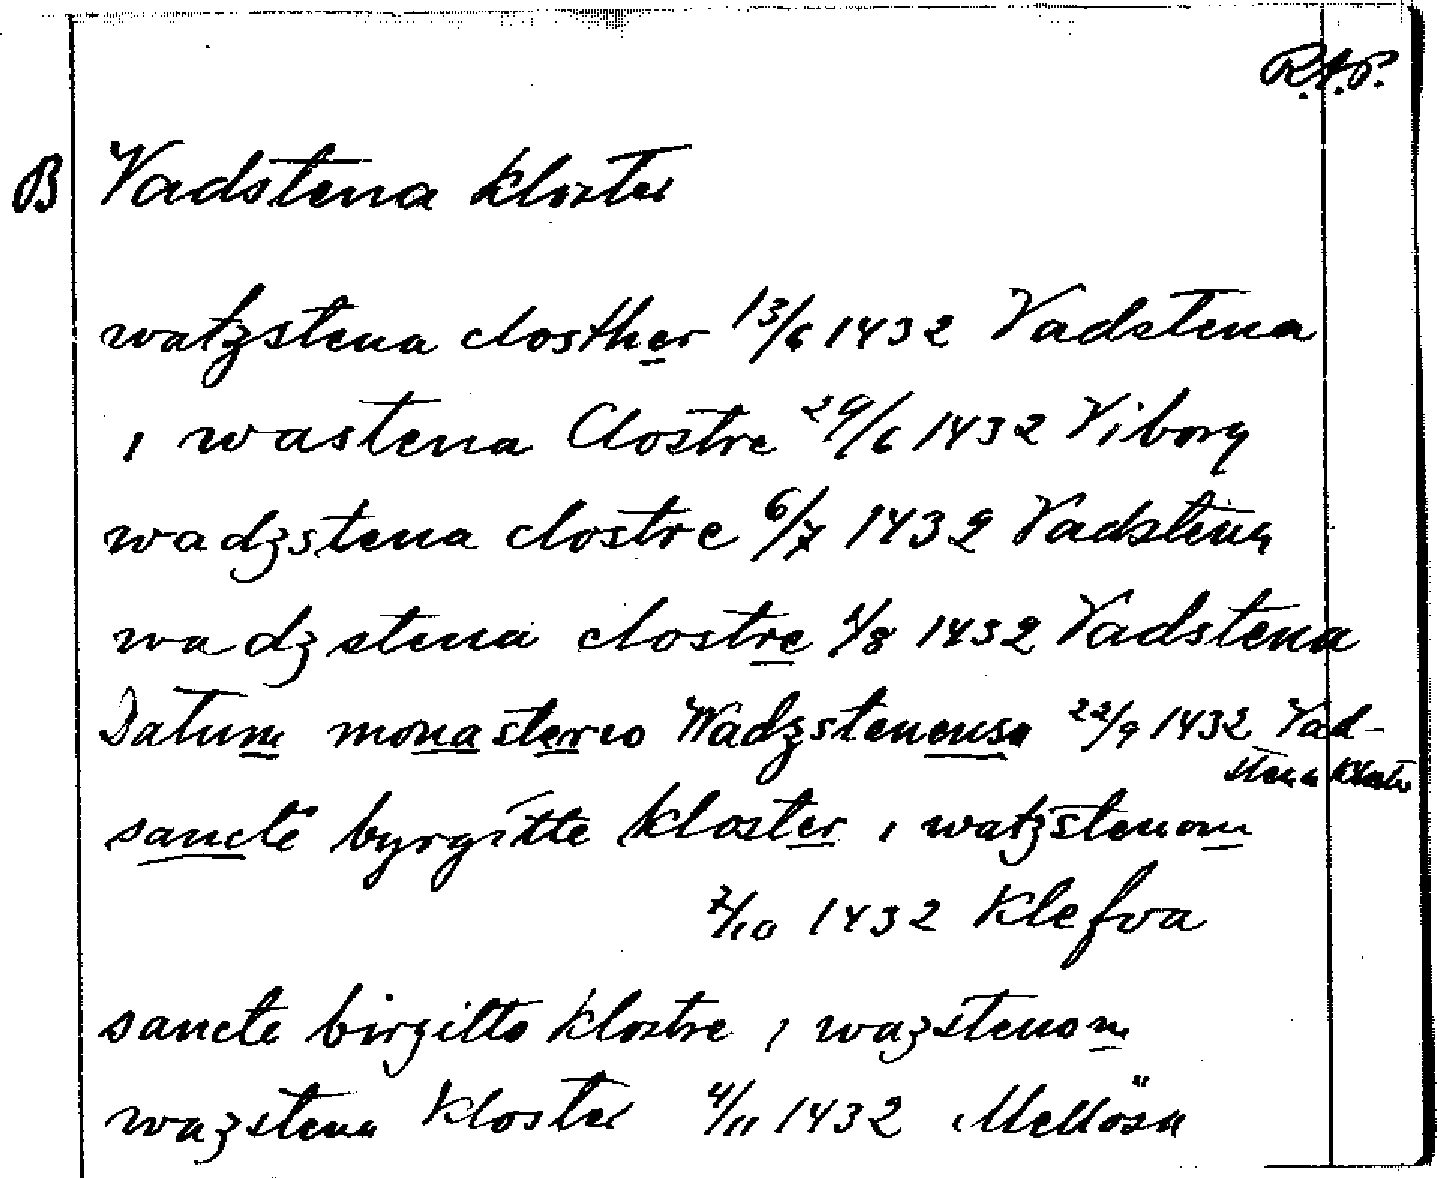 R.A.P.
B Vadstena kloster
watzstena closther 13/6 1432 Vadstena
i wastena Clostre 29/6 1432 Viborg
wadzstena clostre 6/7 1432 Vadstena
wadzstena clostre 1/8 1432 Vadstena
Datum monasterio Wadzstenensi 22/9 1432 Vad-
stena kloster
sancte byrgitte kloster i watzstenom
7/10 1432 Klefva
sancte birgitte klostre i wazstenom
wazstena kloster 4/11 1432 Mellösa